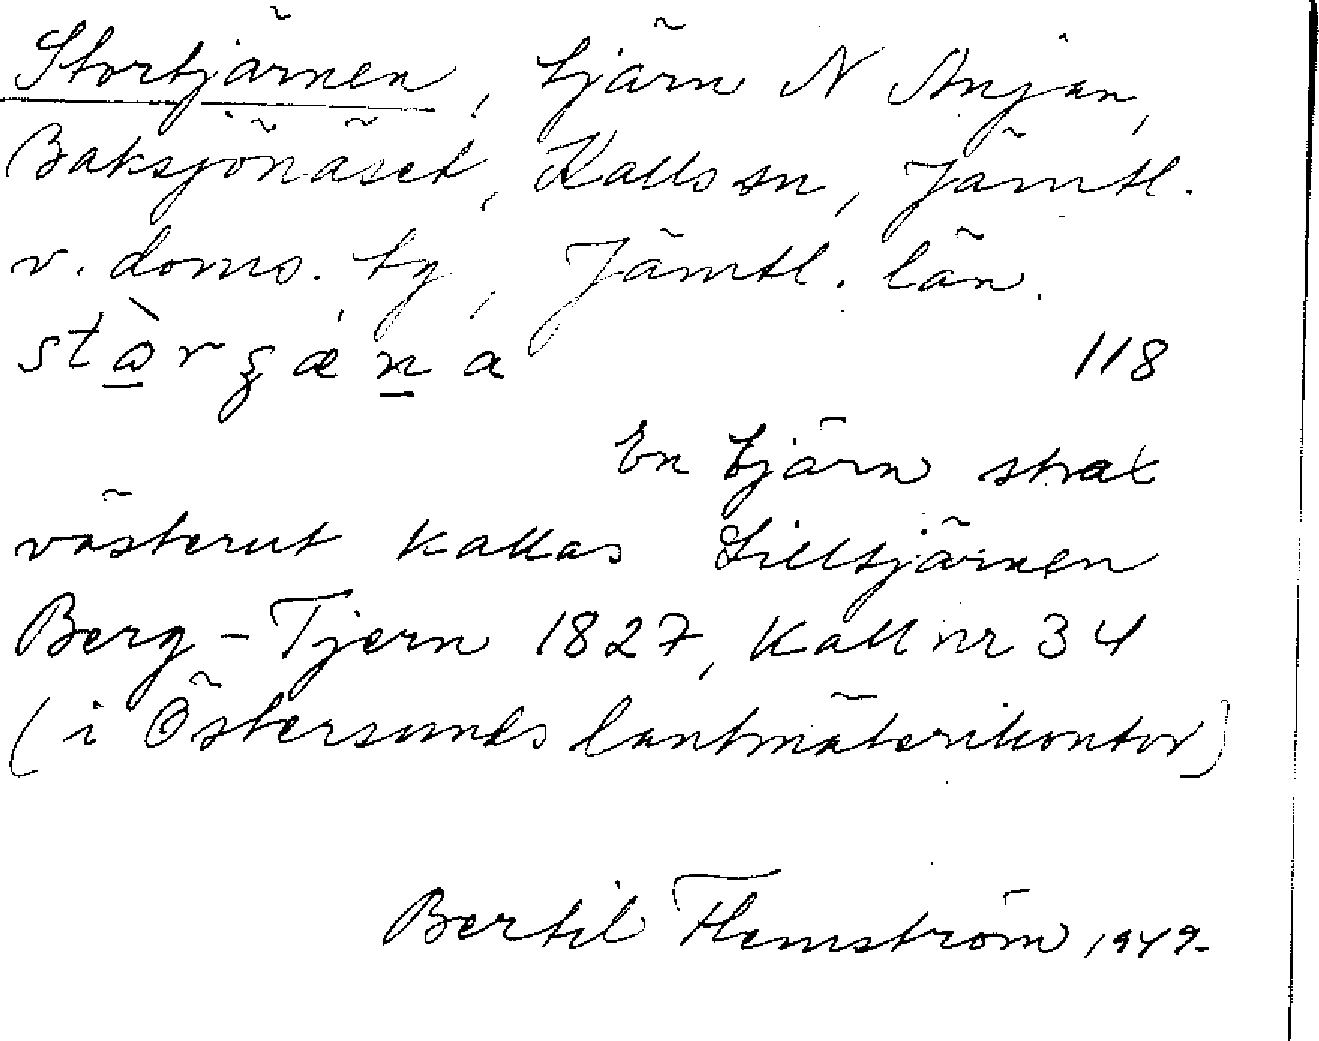 Stortjärnen, tjärn N Anjan,
Baksjönäset, Kalls sn, Jämtl.
v. doms. tg, Jämtl. län.
118
En tjärn strax
västerut kallas Lilltjärnen
Berg-Tjern 1827, Kall nr 34
(i Östersunds lantmäterikontor)
Bertil Flemström 1949.